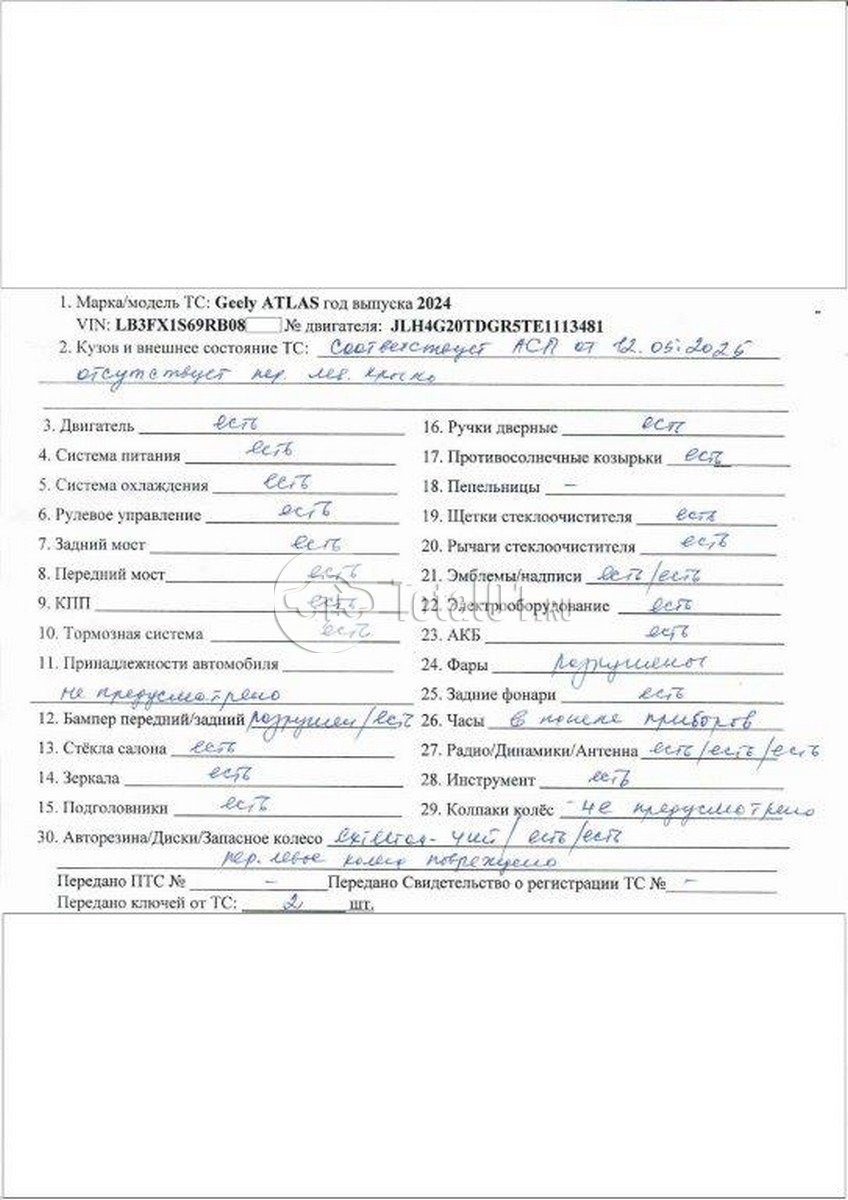 1. Марка/модель ТС: Geely ATLAS год выпуска 2024
VIN: LB3FX1S69RB08 № двигателя: JLH4G20TDGR5TE1113481
2. Кузов и внешнее состояние ТС: Соответствует АСП от 12.05.2025
отсутствует пер. лев. крыло
3. Двигатель есть
4. Система питания есть
5. Система охлаждения есть
6. Рулевое управление есть
7. Задний мост есть
8. Передний мост есть
9. КПП есть
10. Тормозная система есть
11. Принадлежности автомобиля
не предусмотрено
12. Бампер передний/задний разрушен/есть
13. Стёкла салона есть
14. Зеркала есть
15. Подголовники есть
16. Ручки дверные есть
17. Противосолнечные козырьки есть
18. Пепельницы –
19. Щетки стеклоочистителя есть
20. Рычаги стеклоочистителя есть
21. Эмблемы/надписи есть/есть
22. Электрооборудование есть
23. АКБ есть
24. Фары разрушены
25. Задние фонари есть
26. Часы в панеле приборов
27. Радио/Динамики/Антенна есть/есть/есть
28. Инструмент есть
29. Колпаки колёс не предусмотрено
30. Авторезина/Диски/Запасное колесо 4шт/есть/есть
пер. левое колесо повреждено
Передано ПТС № – Передано Свидетельство о регистрации ТС № –
Передано ключей от ТС: 2 шт.
Total01.ru